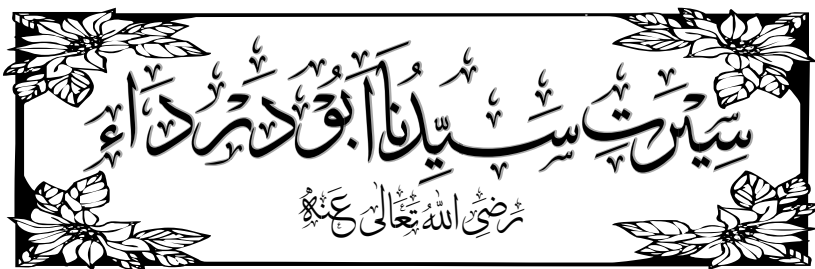 سِیْرَتِ سَیِّدُنَا اَبُوْ دَرْدَاء
رَضِیَ اللّٰهُ تَعَالٰی عَنْهُ